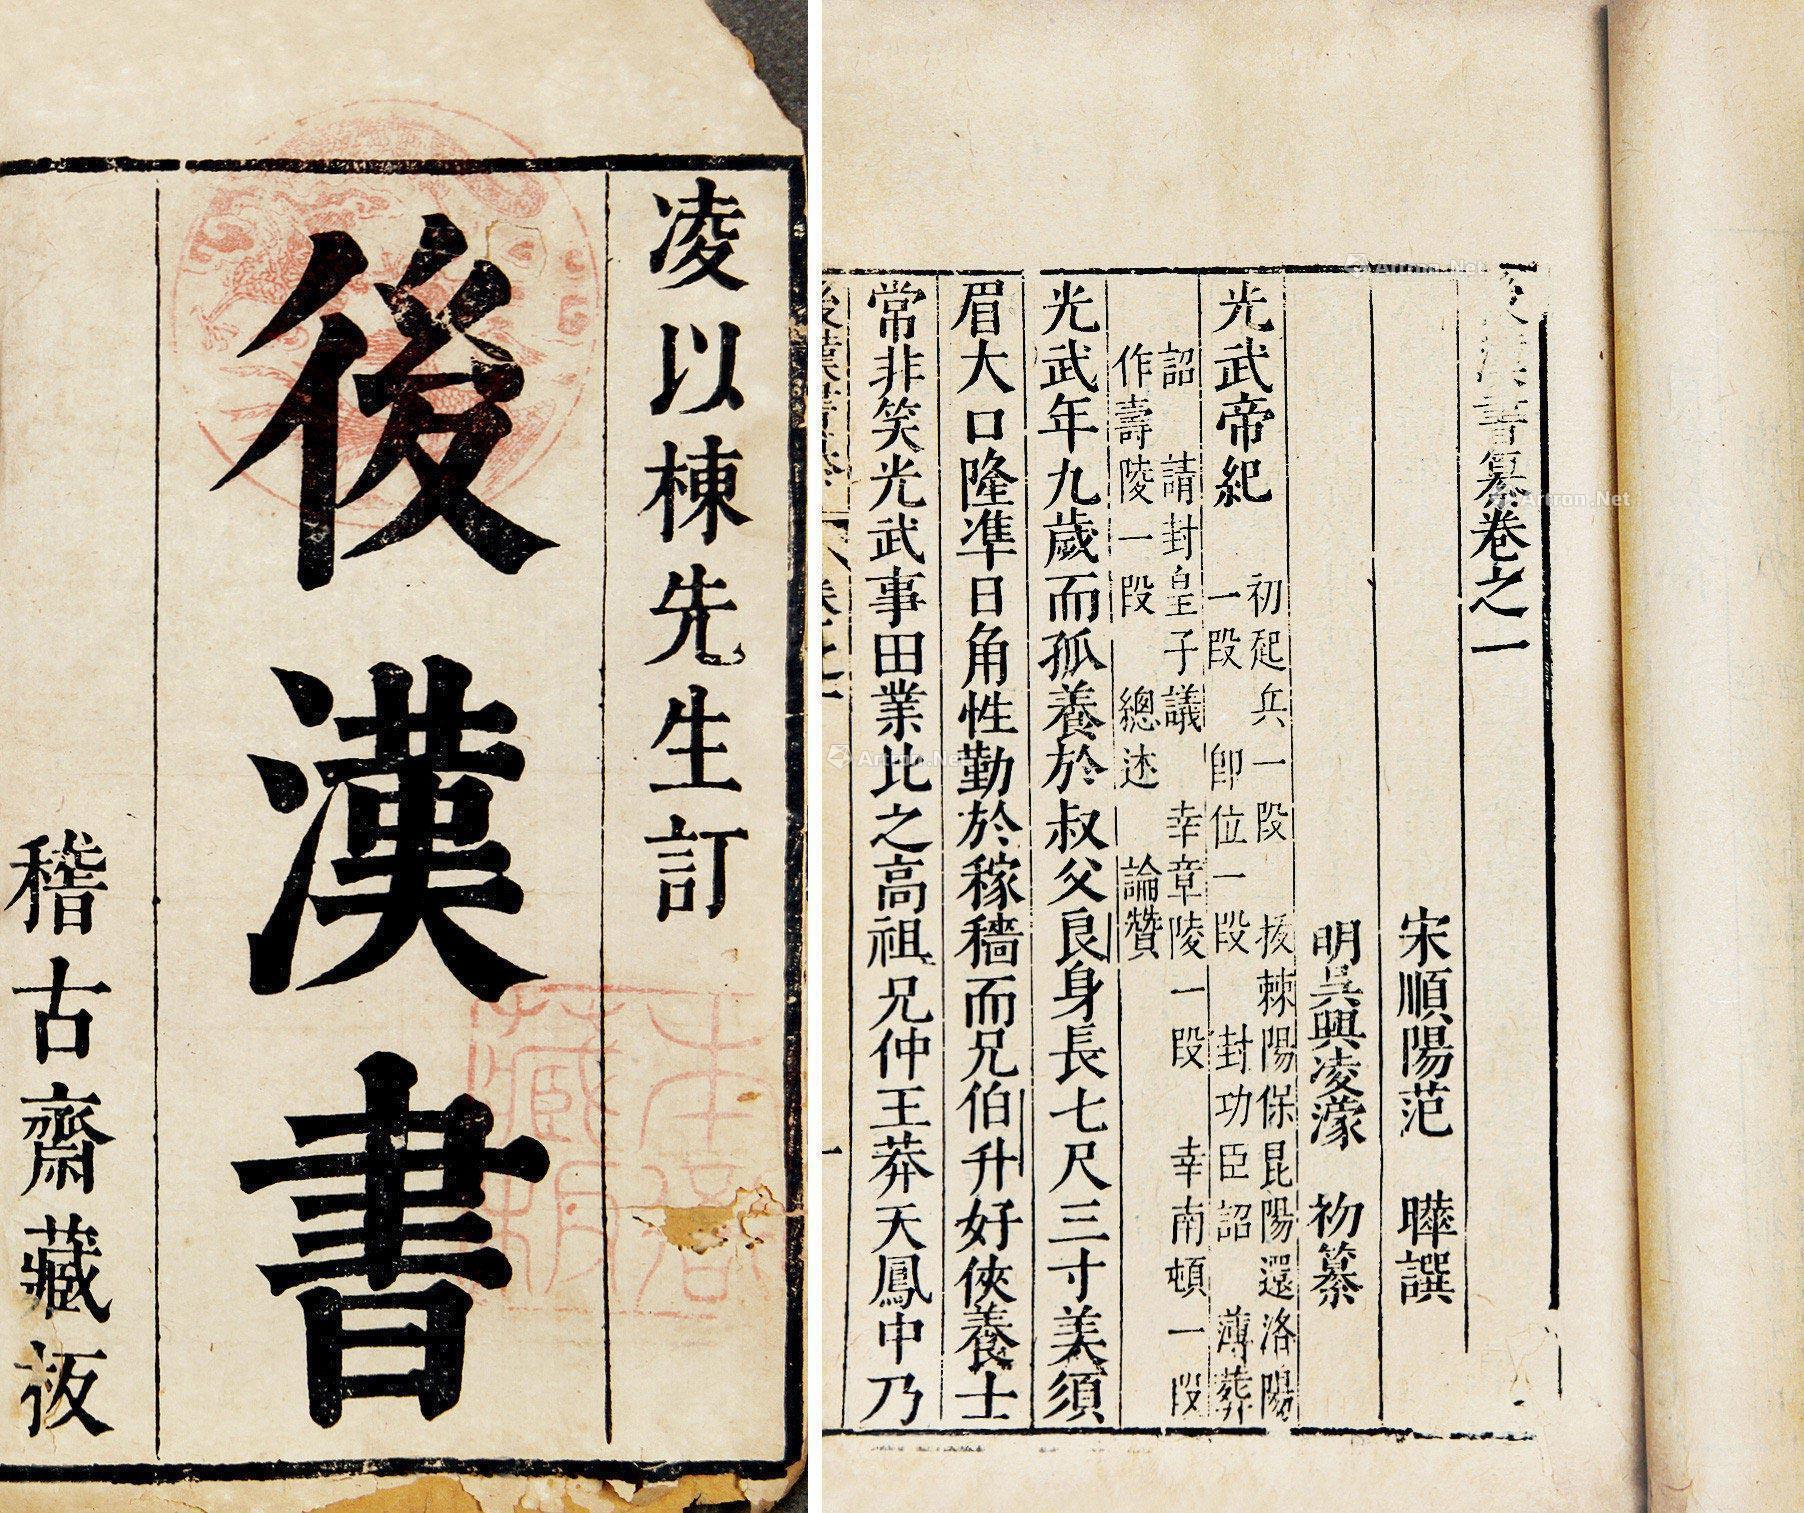 凌以棟先生訂
後漢書
稽古齋藏板
漢書纂卷之一
宋順陽范 曄譔
明吳興凌濛 初纂
光武帝紀 初起兵一段 拔棘陽保昆陽還洛陽
一段 卽位一段 封功臣詔 薄葬
詔 請封皇子議 幸章陵一段 幸南頓一段
作壽陵一段 總述 論贊
光武年九歲而孤養於叔父良身長七尺三寸美須
眉大口隆準日角性勤於稼穡而兄伯升好俠養士
常非笑光武事田業比之高祖兄仲王莽天鳳中乃
一
Artron.Net
Artron.Net
Artron.Net